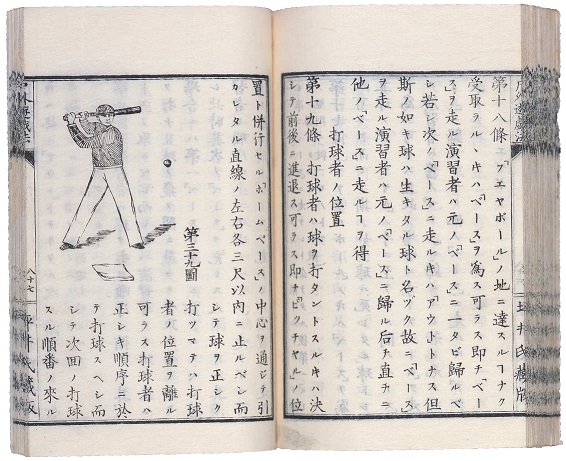 坪井氏藏版
第十八條 「フエヤボール」ノ地ニ達スルヿナク
受取ラルキハ「ベース」ヲ爲ス可ラス即チ「ベー
ス」ヲ走ル演習者ハ元ノ「ベース」ニ一タビ歸ルベ
シ若シ次ノ「ベースニ走ルキハ「アウトトナス但
斯ノ如キ球ハ生キタル球ト名ヅク故ニ「ベース」
ヲ走ル演習者ハ元ノ「ベース」ニ歸ル后チ直チニ
他ノ「ベース」ニ走ルヿヲ得
打球者ノ位置
第十九條 打球者ハ球ヲ打タントスルキハ決
シテ前後ニ進退ス可ラス即チ「ピツチヤル」ノ位
置ト併行セルホームベースノ中心ヲ通ジテ引
カレタル直線ノ左右各三尺以内ニ止ルベシ而
第三十九圖
シテ球ヲ正シク
打ツマテハ打球
者ノ位置ヲ離ル
可ラス打球者ハ
正シキ順序ニ於
テ打球スヘシ而
シテ次回ノ打球
スル順番ノ來ル
八十七
坪井氏藏版